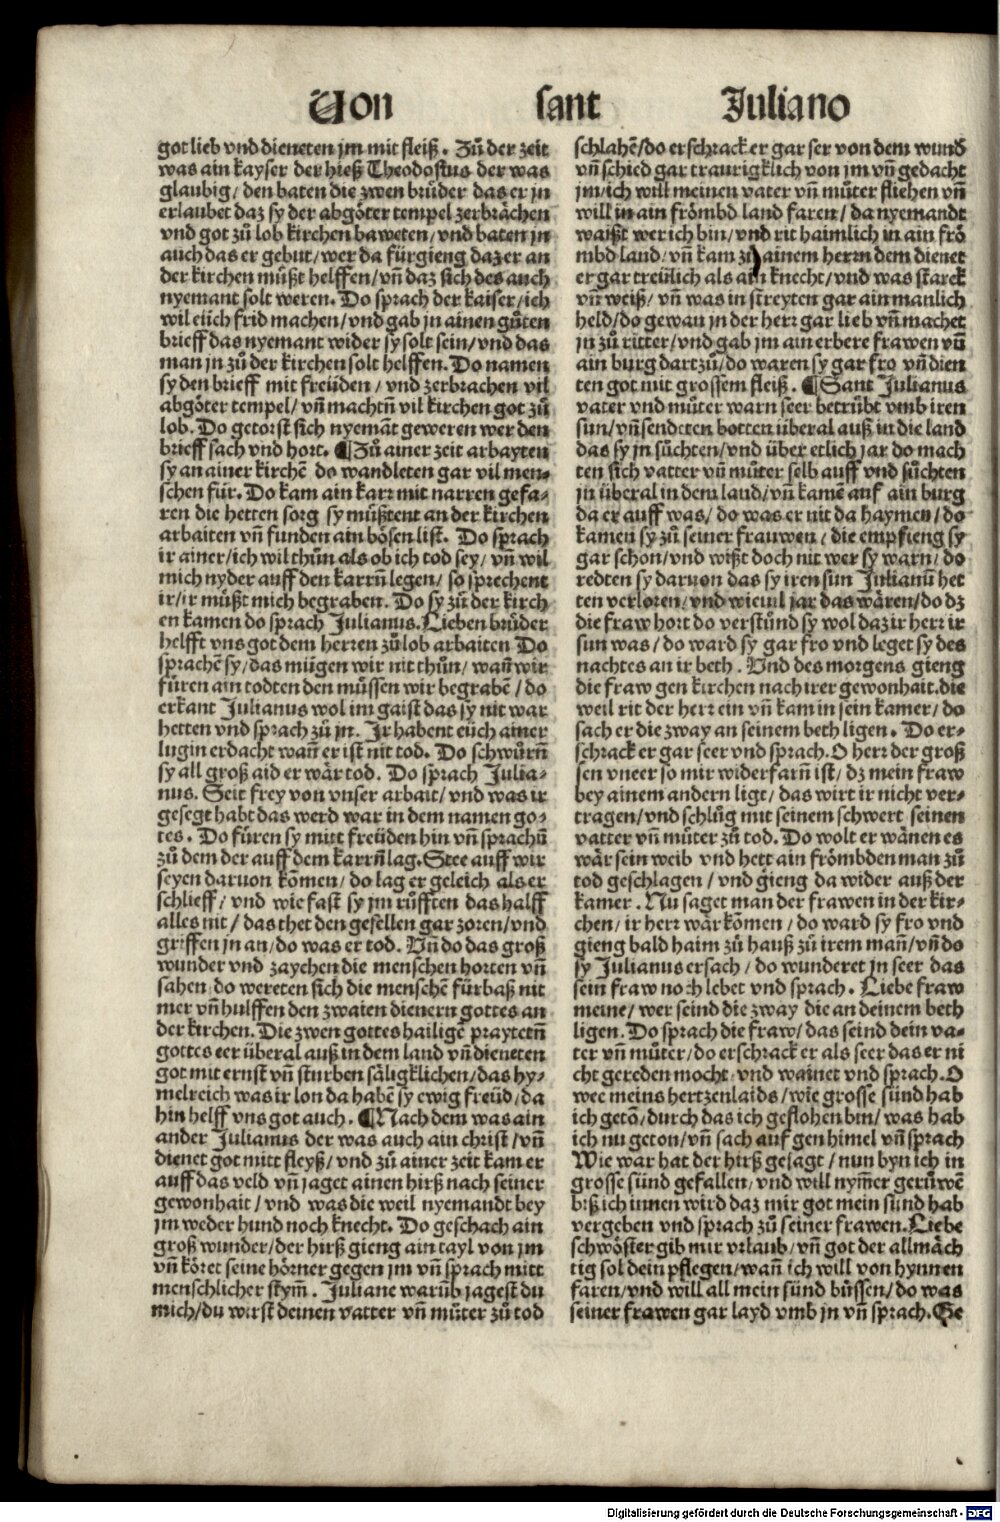 Von sant Juliano
got lieb vnd dieneten jm mit fleiß. Zů der zeit
was ain kayser der hieß Theodosius der was
glaubig/ den baten die zwen brůder das er jn
erlaubet daz sy der abgöter tempel zerbrächen
vnd got zů lob kirchen baweten/ vnd baten jn
auch das er gebut/ wer da fürgieng daz er an
der kirchen müßt helffen/ vñ daz sich des auch
nyemant solt weren. Do sprach der kaiser/ ich
wil eüch frid machen/ vnd gab jn ainen gůten
brieff das nyemant wider sy solt sein/ vnd das
man jn zů der kirchen solt helffen. Do namen
sy den brieff mit freüden/ vnd zerbrachen vil
abgöter tempel/ vñ machtñ vil kirchen got zů
lob. Do getorst sich nyemāt geweren wer den
brieff sach vnd hort. ¶Zů ainer zeit arbayten
sy an ainer kirchē do wandleten gar vil men⸗
schen für. Do kam ain karr mit narren gefa⸗
ren die hetten sorg sy müßtent an der kirchen
arbaiten vñ funden ain bösen list. Do sprach
ir ainer/ ich wil thůn als ob ich tod sey/ vñ wil
mich nyder auff den karrñ legen/ so sprechent
ir/ ir müßt mich begraben. Do sy zů der kirch
en kamen do sprach Julianus. Lieben brůder
helfft vns got dem herren zů lob arbaiten Do
sprachē sy/ das mügen wir nit thůn/ wañ wir
füren ain todten den müssen wir begrabē/ do
erkant Julianus wol im gaist das sy nit war
hetten vnd sprach zů jn. Jr habent eüch ainer
lugin erdacht wañ er ist nit tod. Do schwůrñ
sy all groß aid er wär tod. Do sprach Julia⸗
nus. Seit frey von vnser arbait/ vnd was ir
gesegt habt das werd war in dem namen go⸗
tes. Do fůren sy mitt freüden hin vñ sprachñ
zů dem der auff dem karrñ lag. Stee auff wir
seyen daruon kōmen/ do lag er geleich als er
schlieff/ vnd wie fast sy jm růfften das halff
alles nit/ das thet den gesellen gar zoren/ vnd
griffen jn an/ do was er tod. Vñ do das groß
wunder vnd zaychen die menschen horten vñ
sahen do wereten sich die menschē fürbaß nit
mer vñ hulffen den zwaien dienern gottes an
der kirchen. Die zwen gottes hailigē praytetñ
gottes eer überal auß in dem land vñ dieneten
got mit ernst vñ sturben säligklichen/ das hy⸗
melreich was ir lon da habē sy ewig freüd/ da
hin helff vns got auch. ¶Nach dem was ain
ander Julianus der was auch ain christ/ vñ
dienet got mitt fleyß/ vnd zů ainer zeit kam er
auff das veld vñ jaget ainen hirß nach seiner
gewonhait/ vnd was die weil nyemandt bey
jm weder hund noch knecht. Do geschach ain
groß wunder/ der hirß gieng ain tayl von jm
vñ köret seine hörner gegen jm vñ sprach mitt
menschlicher stym̃. Juliane warūb jagest du
mich/ du wirst deinen vatter vñ můter zů tod
schlahē/ do erschrack er gar ser von dem wund
vñ schied gar traurigklich von jm vñ gedacht
jm/ ich will meinen vater vñ můter fliehen vñ
will in ain frömbd land faren/ da nyemandt
waißt wer ich bin/ vnd rit haimlich in ain frö
mbd land/ vñ kam zů ainem herrn dem dienet
er gar treülich als ain knecht/ vnd was starck
vñ weiß/ vñ was in streyten gar ain manlich
held/ do gewan jn der herr gar lieb vñ machet
jn zů ritter/ vnd gab jm ain erbere frawen vñ
ain burg dartzů/ do waren sy gar fro vñ dien
ten got mit grossem fleiß. ¶Sant Julianus
vater vnd můter warn seer betrübt vmb iren
sun/ vñ sendeten botten überal auß in die land
das sy jn sůchten/ vnd über etlich jar do mach
ten sich vatter vñ můter selb auff vnd sůchten
jn überal in dem land/ vñ kamē auf ain burg
da er auff was/ do was er nit da haymen/ do
kamen sy zů seiner frauwen/ die empfieng sy
gar schon/ vnd wißt doch nit wer sy warn/ do
redten sy daruon das sy iren sun Julianū het
ten verloren/ vnd wieuil jar das wären/ do dz
die fraw hort do verstůnd sy wol daz ir herr ir
sun was/ do ward sy gar fro vnd leget sy des
nachtes an ir beth. Vnd des morgens gieng
die fraw gen kirchen nach irer gewonhait. die
weil rit der herr ein vñ kam in sein kamer/ do
sach er die zway an seinem beth ligen. Do er⸗
schrack er gar seer vnd sprach. O herr der groß
sen vneer so mir widerfarñ ist/ dz mein fraw
bey ainem andern ligt/ das wirt ir nicht ver⸗
tragen/ vnd schlůg mit seinem schwert seinen
vatter vñ můter zů tod. Do wolt er wänen es
wär sein weib vnd hett ain frömbden man zů
tod geschlagen/ vnd gieng da wider auß der
kamer. Nu saget man der frawen in der kir⸗
chen/ ir herr wär kōmen/ do ward sy fro vnd
gieng bald haim zů hauß zů irem mañ/ vñ do
sy Julianus ersach/ do wunderet jn seer das
sein fraw noch lebet vnd sprach. Liebe fraw
meine/ wer seind die zway die an deinem beth
ligen. Do sprach die fraw/ das seind dein va⸗
ter vñ můter/ do erschrack er als seer das er ni
cht gereden mocht vnd wainet vnd sprach. O
wee meins hertzenlaids/ wie grosse sünd hab
ich getō/ durch das ich geflohen bin/ was hab
ich nu geton/ vñ sach auf gen himel vñ sprach
Wie war hat der hirß gesagt/ nun byn ich in
grosse sünd gefallen/ vnd will nym̃er gerůwē
biß ich innen wird daz mir got mein sünd hab
vergeben vnd sprach zů seiner frawen. Liebe
schwöster gib mir vrlaub/ vñ got der allmäch
tig sol dein pflegen/ wañ ich will von hynnen
faren/ vnd will all mein sünd büssen/ do was
seiner frawen gar layd vmb jn vñ sprach. Ge
Digitalisierung gefördert durch die Deutsche Forschungsgemeinschaft - DFG